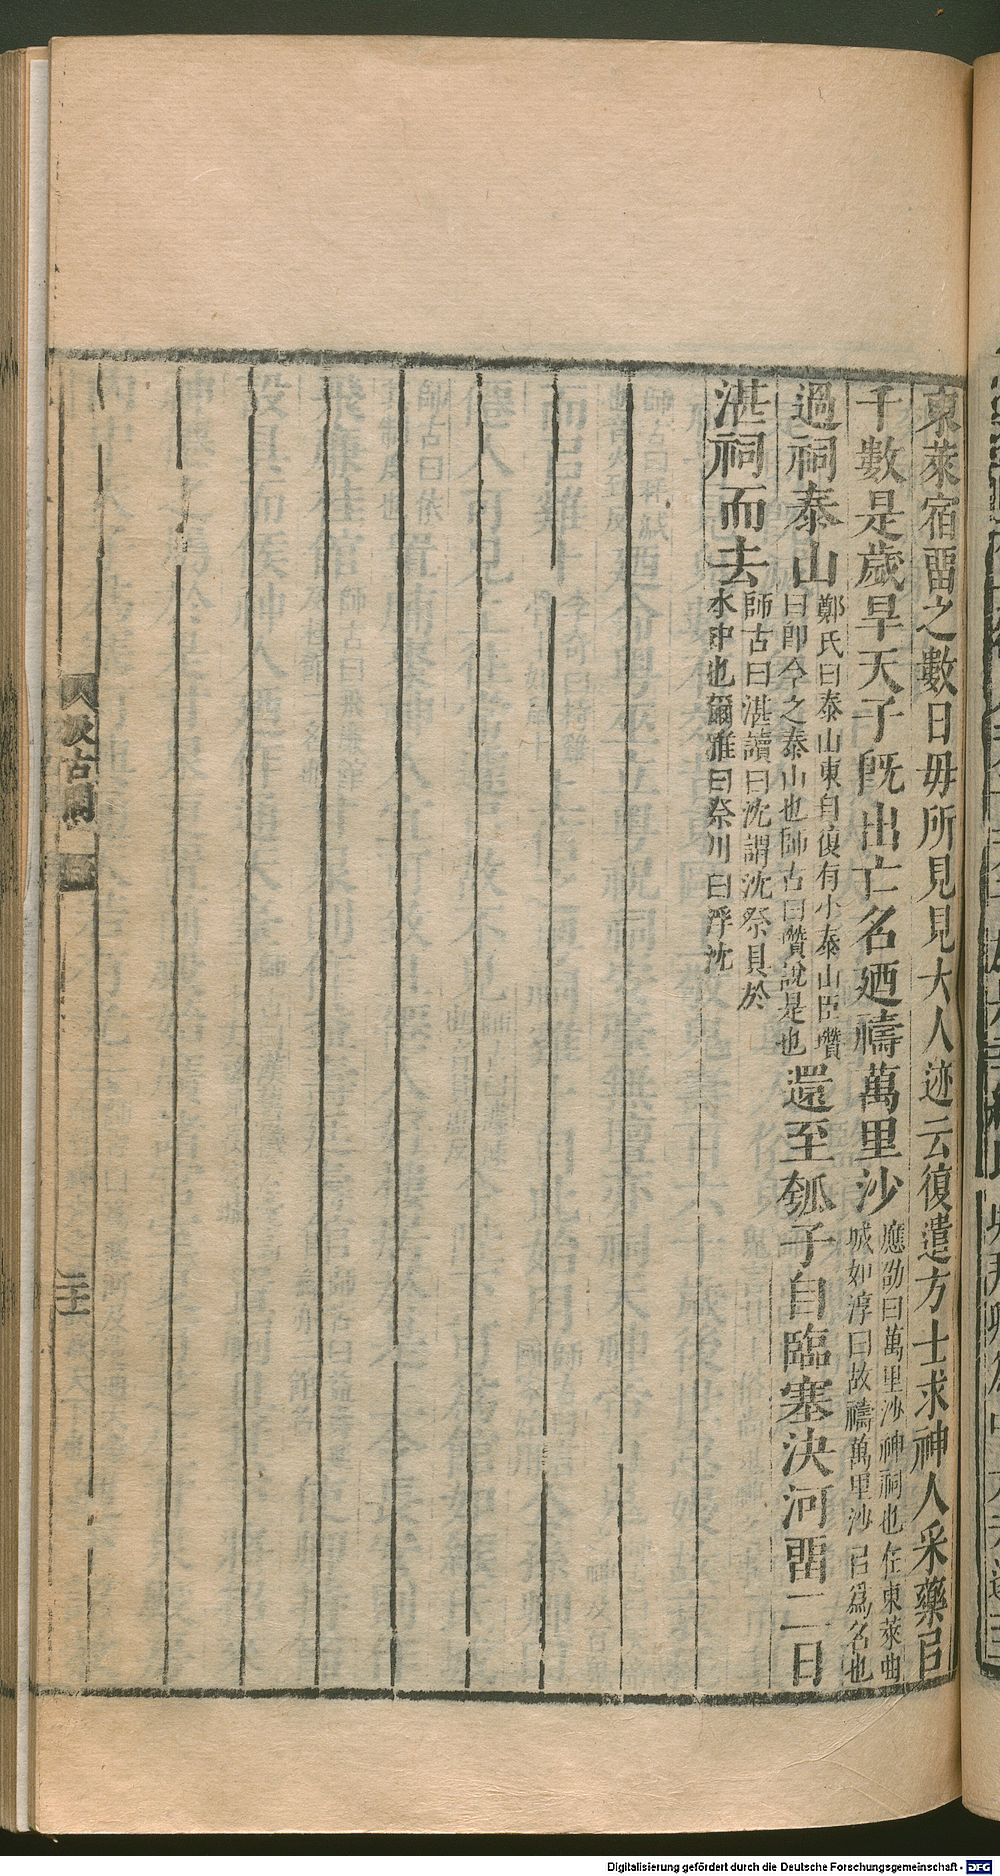 東萊宿畱之數日毋所見見大人迹云復遣方士求神人采藥㠯
千數是歲旱天子旣出亡名廼禱萬里沙應劭曰萬里沙神祠也在東萊曲
城如淳曰故禱萬里沙㠯爲名也
過祠泰山鄭氏曰泰山東自復有小泰山臣瓚
曰卽今之泰山也師古曰瓚說是也還至瓠子自臨塞決河畱二日
湛祠而去師古曰湛讀曰沈謂沈祭具於
水中也爾雅曰祭川曰浮沈
汲古閣
Digitalisierung gefördert durch die Deutsche Forschungsgemeinschaft - DFG